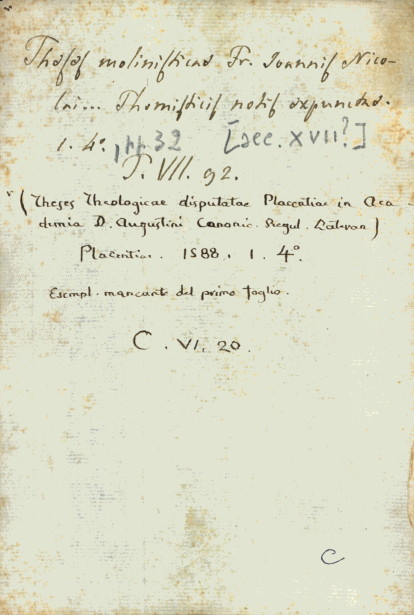 Theses molinisticas Fr. Joannis Nico-
lai... Thomisticis notis expunctas.
1. 4°, pp. 32 [sec. XVII?]
T. VII. 92.
(Theses Theologicae disputatae Placentiae in Aca-
demia D. Augustini Canonic. Regul. Lateran)
Placentiae. 1588. 1. 4°.
Esempl. mancante del primo foglio.
C. VI. 20.
C